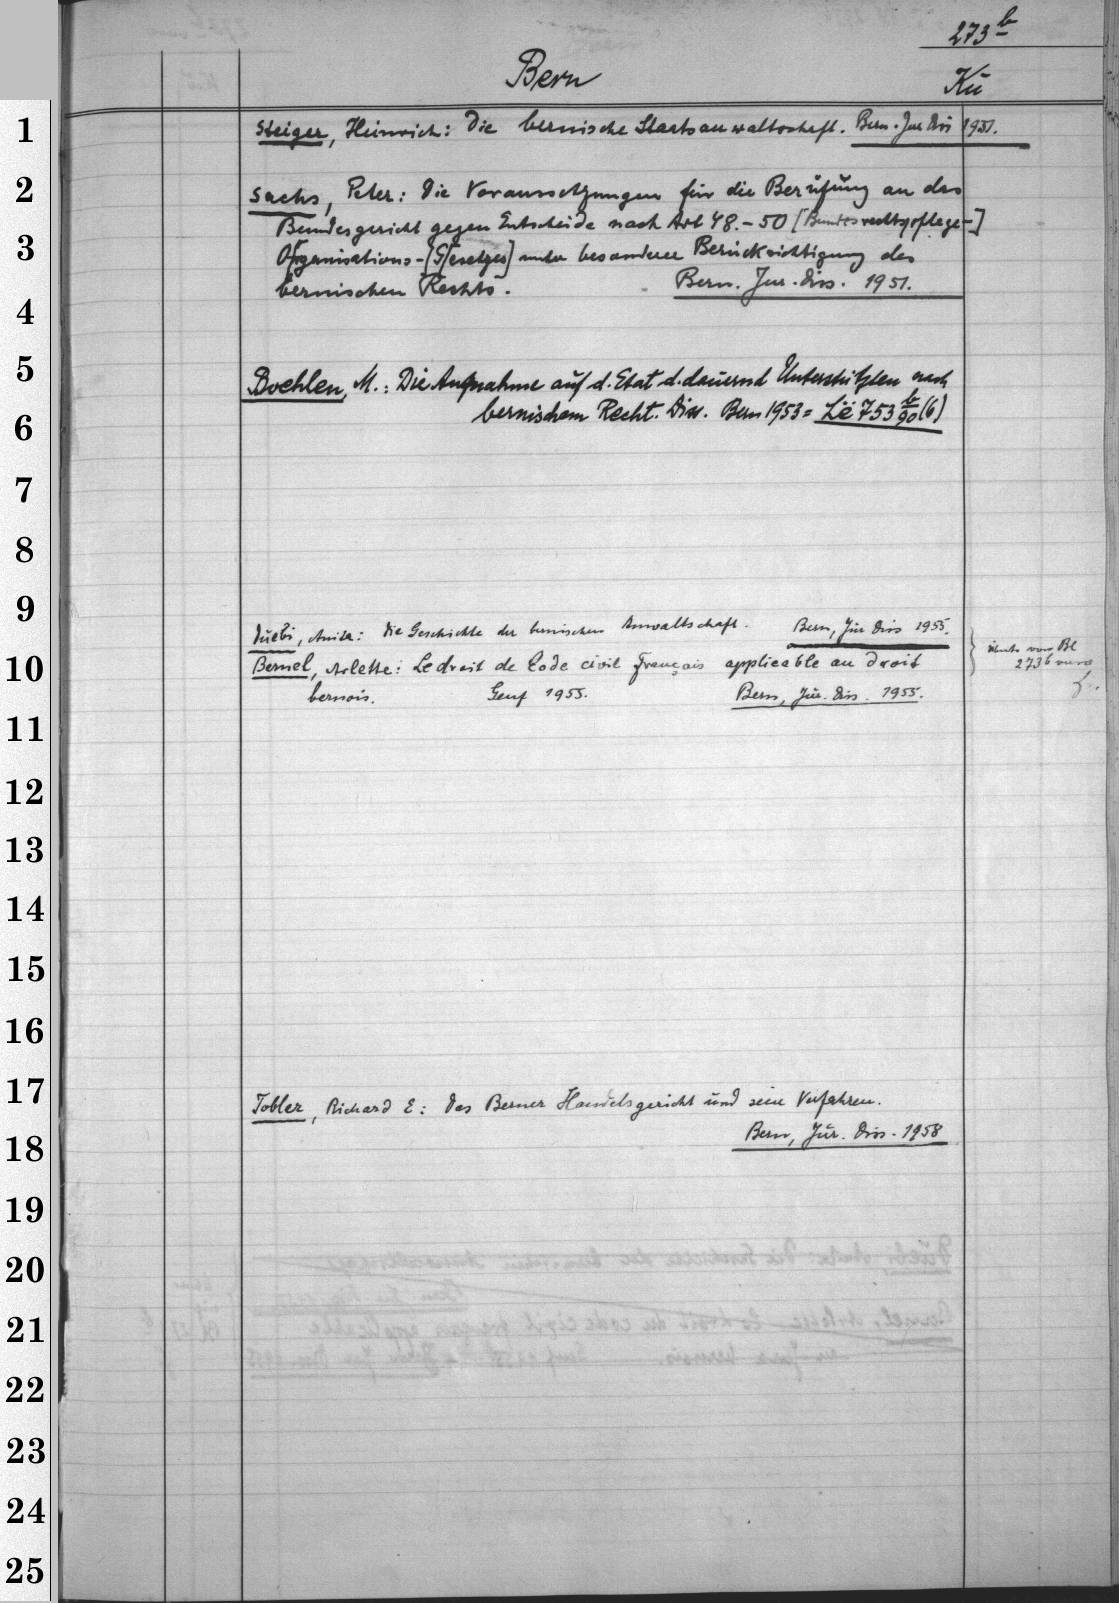 273b
Bern
Kü
1
Steiger, Heinrich: Die bernische Staatsanwaltschaft. Bern. Jur Diss 1951.
2
Sachs, Peter: Die Voraussetzungen für die Berufung an das
Bundesgericht gegen Entscheide nach Art 48.-50 [Bundesrechtspflege-]
3
O[rganisations-[G[esetzes] unter besonderer Berücksichtigung des
bernischen Rechts. Bern. Jur. Diss. 1951.
4
5
Boehlen, M.: Die Aufnahme auf d. Etat d. dauernd Unterstützten nach
bernischem Recht. Diss. Bern 1953 = Lë 753 b/90 (6)
6
7
8
9
Düebi, Anita: Die Geschichte der bernischen Anwaltschaft. Bern, Jur Diss 1955.
10
Bernel, Arlette: Le droit de Code civil français applicable au droit
bernois. Genf 1955. Bern, Jur. Diss. 1955.
Bl
273b
11
12
13
14
15
16
17
Tobler, Richard E: Das Berner Handelsgericht und sein Verfahren.
Bern, Jur. Diss. 1958
18
19
20
21
22
23
24
25